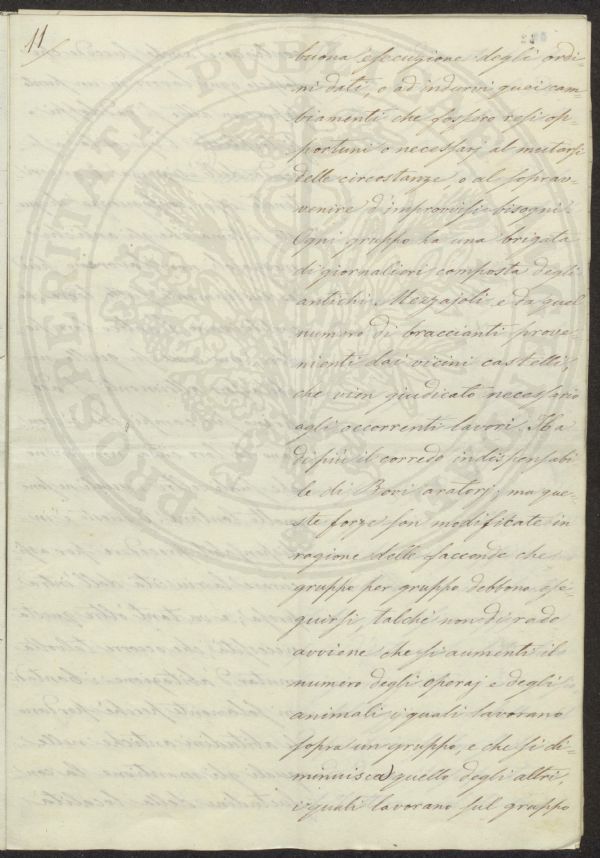 11
buona esecuzione degli ordi-
ni dati, o ad indurvi quei cam-
biamenti che fossero resi op-
portuni o necessarj al mutarsi
delle circostanze, o al soprav-
venire d'improvvisi bisogni.
Ogni gruppo ha una brigata
di giornalieri composta degli
antichi Mezzajoli, e da quel
numero di braccianti prove-
nienti dai vicini castelli,
che vien giudicato necessario
agli occorrenti lavori. Ha
di più il corredo indispensabi-
le di Bovi aratorj; ma que-
ste forze son modificate in
ragione delle faccende che
gruppo per gruppo debbono ese-
guirsi, talchè non di rado
avviene che si aumenti il
numero degli operaj e degli
animali i quali lavorano
sopra un gruppo, e che si di-
minuisca quello degli altri,
i quali lavorano sul gruppo
PROSPERITATI PUBLICAE